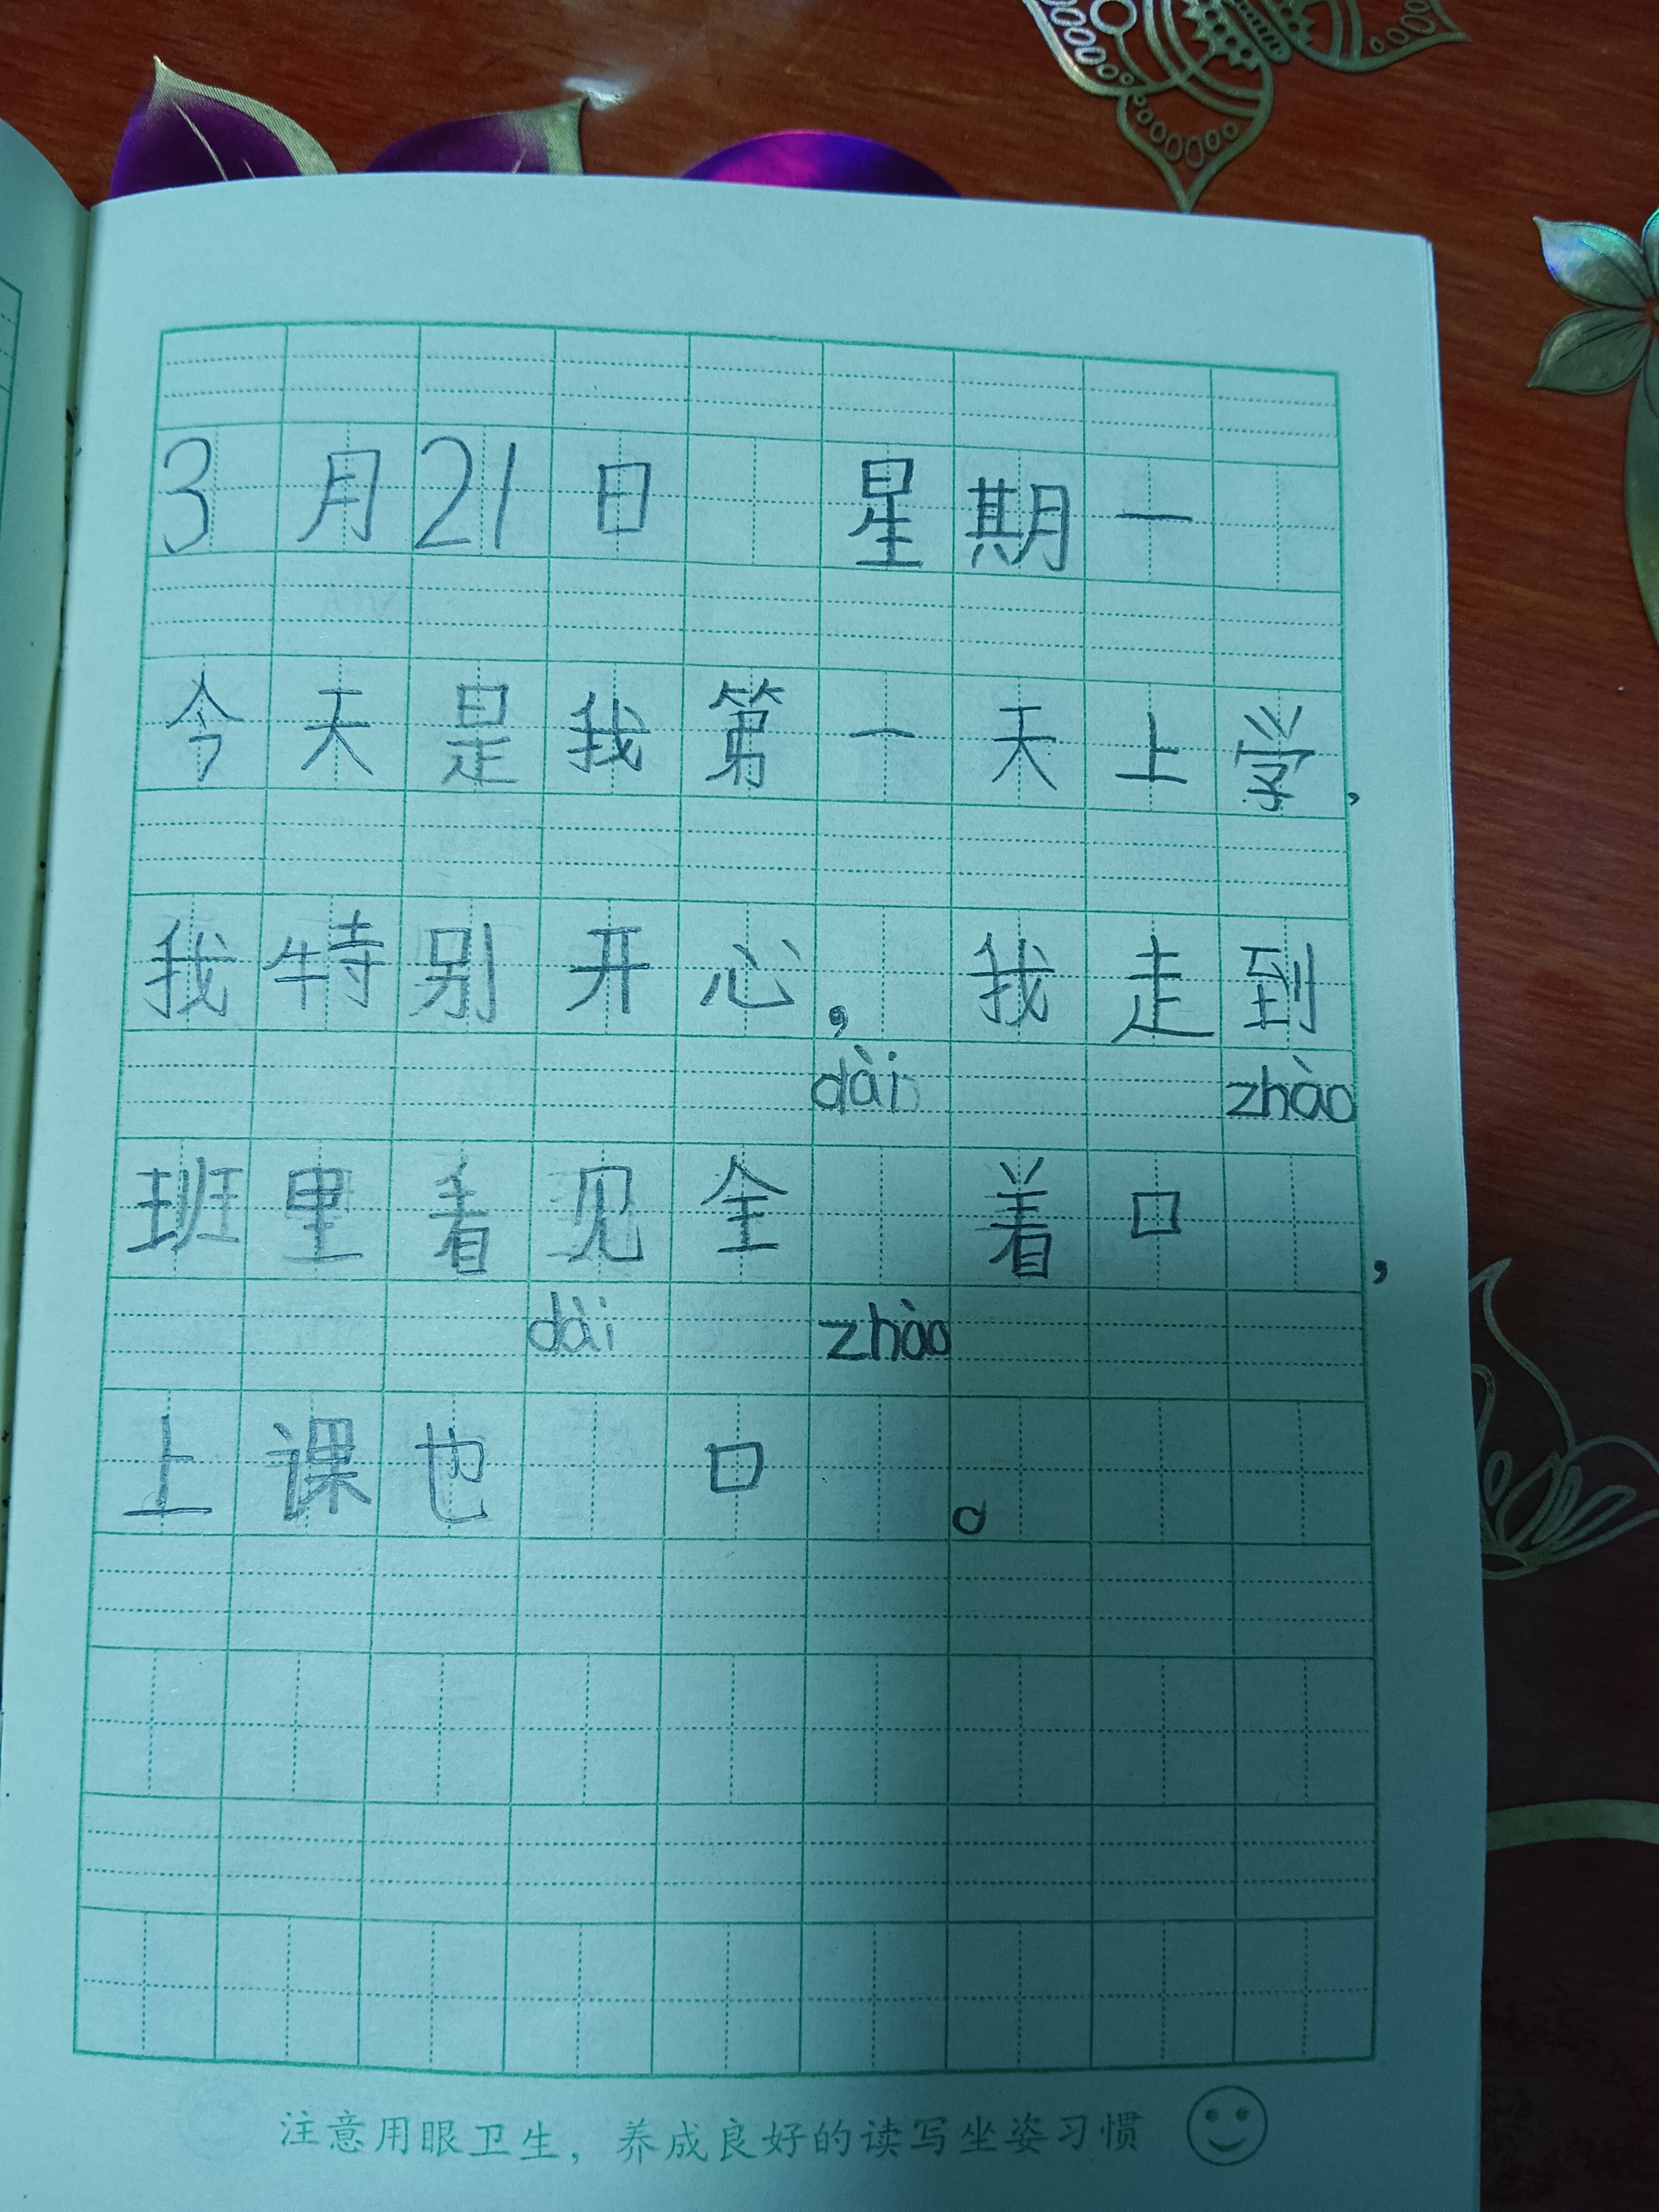 3月21日 星期一
今天是我第一天上学，
我特别开心，我走到
dài zhào
班里看见全 着口 ，
dài zhào
上课也 口 。
注意用眼卫生，养成良好的读写坐姿习惯